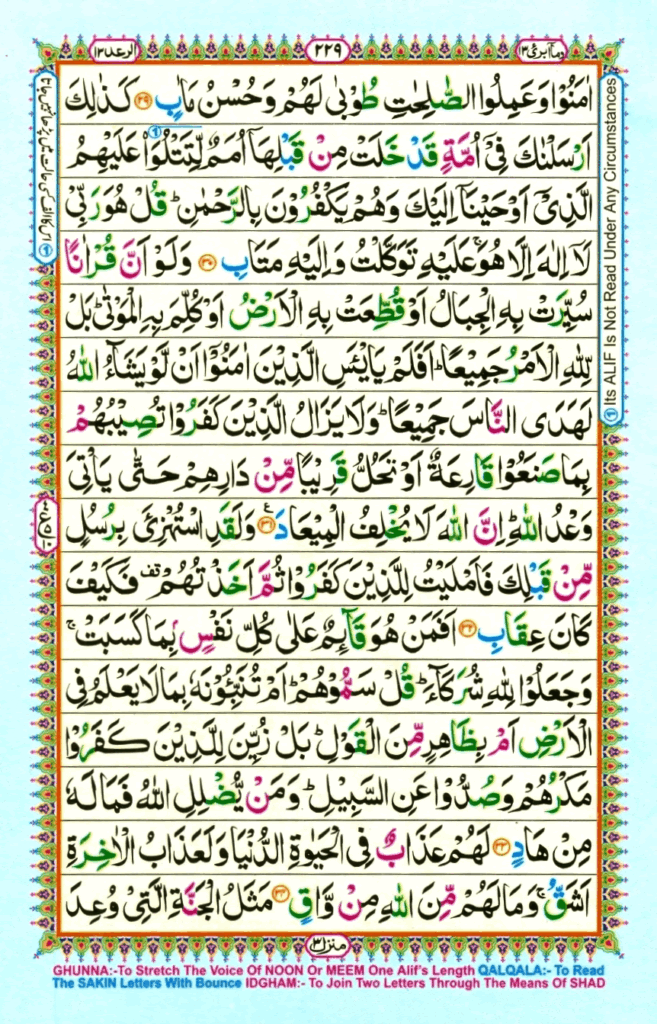 وماابرئ ١٣
٢٢٩
الرعد ١٣
اٰمَنُوْا وَعَمِلُوا الصّٰلِحٰتِ طُوْبٰى لَهُمْ وَحُسْنُ مَاٰبٍ ﴿٢٩﴾ كَذٰلِكَ
اَرْسَلْنٰكَ فِيْٓ اُمَّةٍ قَدْ خَلَتْ مِنْ قَبْلِهَآ اُمَمٌ لِّتَتْلُوَا۟ عَلَيْهِمُ
الَّذِيْٓ اَوْحَيْنَآ اِلَيْكَ وَهُمْ يَكْفُرُوْنَ بِالرَّحْمٰنِ ؕ قُلْ هُوَ رَبِّيْ
لَآ اِلٰهَ اِلَّا هُوَ ۚ عَلَيْهِ تَوَكَّلْتُ وَاِلَيْهِ مَتَابِ ﴿٣٠﴾ وَلَوْ اَنَّ قُرْاٰنًا
سُيِّرَتْ بِهِ الْجِبَالُ اَوْ قُطِّعَتْ بِهِ الْاَرْضُ اَوْ كُلِّمَ بِهِ الْمَوْتٰى ؕ بَلْ
لِّلّٰهِ الْاَمْرُ جَمِيْعًا ؕ اَفَلَمْ يَايْـَٔسِ الَّذِيْنَ اٰمَنُوْٓا اَنْ لَّوْ يَشَآءُ اللّٰهُ
لَهَدَى النَّاسَ جَمِيْعًا ؕ وَلَا يَزَالُ الَّذِيْنَ كَفَرُوْا تُصِيْبُهُمْ
بِمَا صَنَعُوْا قَارِعَةٌ اَوْ تَحُلُّ قَرِيْبًا مِّنْ دَارِهِمْ حَتّٰى يَاْتِيَ
وَعْدُ اللّٰهِ ؕ اِنَّ اللّٰهَ لَا يُخْلِفُ الْمِيْعَادَ ﴿٣١﴾ ع وَلَقَدِ اسْتُهْزِئَ بِرُسُلٍ
مِّنْ قَبْلِكَ فَاَمْلَيْتُ لِلَّذِيْنَ كَفَرُوْا ثُمَّ اَخَذْتُهُمْ قف فَكَيْفَ
كَانَ عِقَابِ ﴿٣٢﴾ اَفَمَنْ هُوَ قَآئِمٌ عَلٰى كُلِّ نَفْسٍ ۢ بِمَا كَسَبَتْ ۚ
وَجَعَلُوْا لِلّٰهِ شُرَكَآءَ ؕ قُلْ سَمُّوْهُمْ ؕ اَمْ تُنَبِّـُٔوْنَهٗ بِمَا لَا يَعْلَمُ فِي
الْاَرْضِ اَمْ بِظَاهِرٍ مِّنَ الْقَوْلِ ؕ بَلْ زُيِّنَ لِلَّذِيْنَ كَفَرُوْا
مَكْرُهُمْ وَصُدُّوْا عَنِ السَّبِيْلِ ؕ وَمَنْ يُّضْلِلِ اللّٰهُ فَمَا لَهٗ
مِنْ هَادٍ ﴿٣٣﴾ لَهُمْ عَذَابٌ فِي الْحَيٰوةِ الدُّنْيَا وَلَعَذَابُ الْاٰخِرَةِ
اَشَقُّ ۚ وَمَا لَهُمْ مِّنَ اللّٰهِ مِنْ وَّاقٍ ﴿٣٤﴾ مَثَلُ الْجَنَّةِ الَّتِيْ وُعِدَ
Its ALIF Is Not Read Under Any Circumstances
منزل ٣
GHUNNA:-To Stretch The Voice Of NOON Or MEEM One Alif's Length QALQALA:- To Read
The SAKIN Letters With Bounce IDGHAM:- To Join Two Letters Through The Means Of SHAD